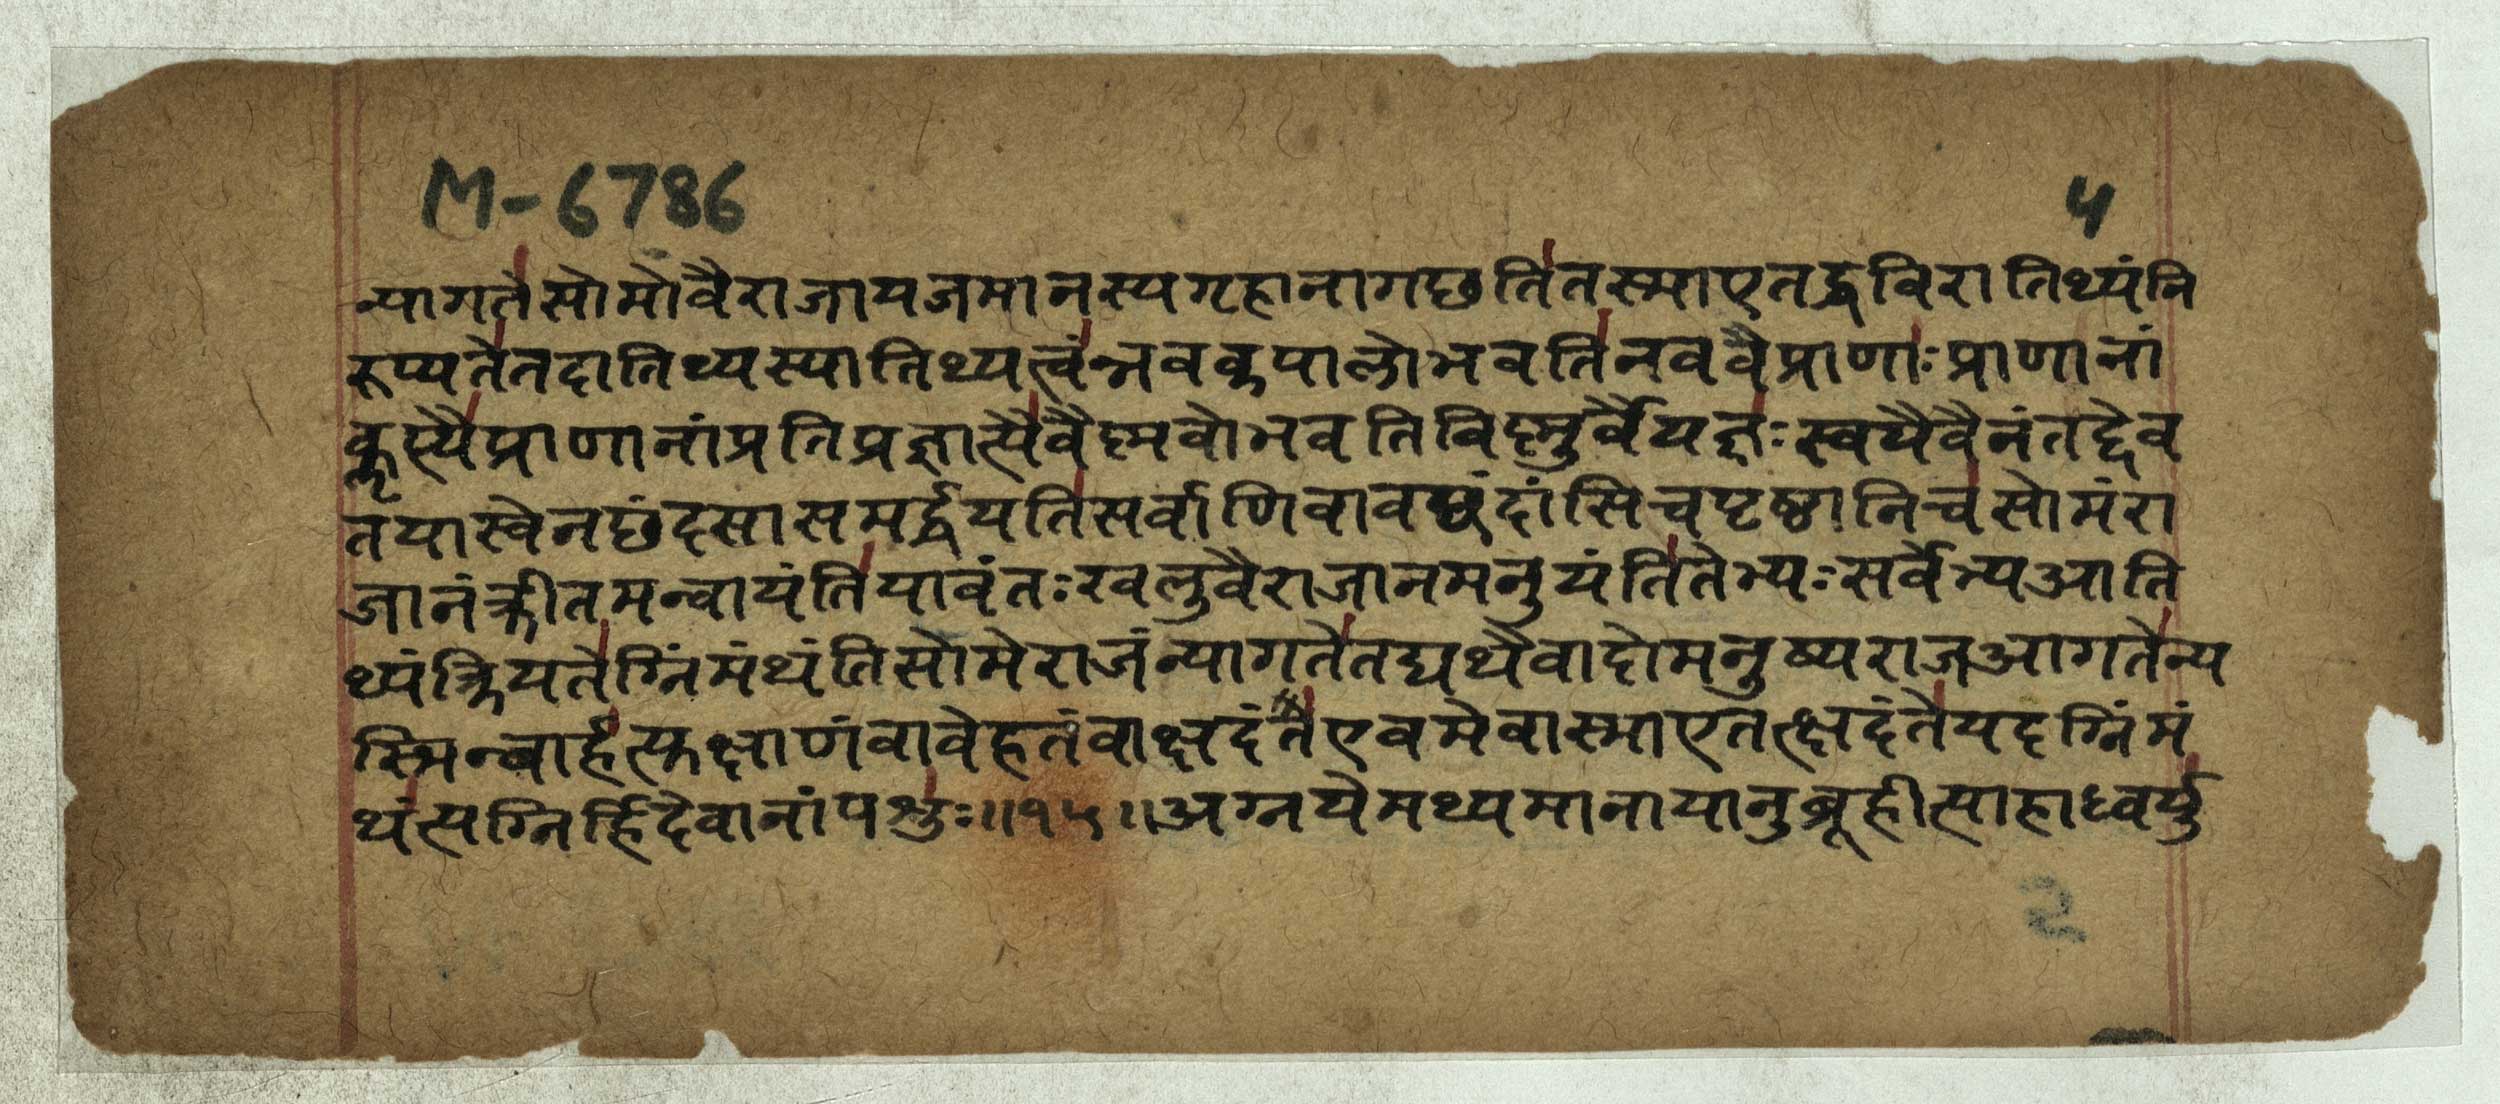 M-6786
५
न्यागतेसोमोवैराजायजमानस्यगृहानागछतितस्माएतद्धविरातिथ्यंनि
रूप्यतेतदातिथ्यस्यातिथ्यत्वंन्नवकपालोभवतिनववैप्राणाःप्राणानां
क्लृप्त्यैप्राणानांप्रतिप्रज्ञात्यैवैष्णवोभवतिविष्णुर्वैयज्ञःस्वयैवैनंतद्देव
तयास्वेनछंदसासमर्द्धयतिसर्वाणिवावछंदांसिचपृष्ठानिचसोमंरा
जानंक्रीतमन्वायंतियावंतःखलुवैराजानमनुयंतितेभ्यःसर्वेभ्यआति
थ्यंक्रियतेग्निंमंथंतिसोमेराजंन्यागतेतद्यथैवादोमनुष्यराजआगतेन्य
स्मिन्वार्हत्युक्षाणंवावेहतंवाक्षदंतेएवमेवास्माएतत्क्षदंतेयदग्निंमं
थंत्यग्निर्हिदेवानांपशुः॥१५॥अग्नयेमथ्यमानायानुब्रूहीत्याहाध्वर्यु
2